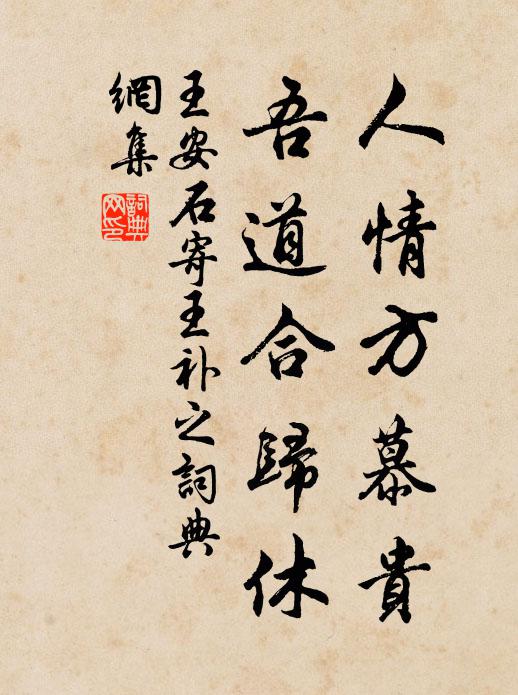 人情方慕貴
吾道合歸休
王安石寄王补之詞典
網集
詞典
网印